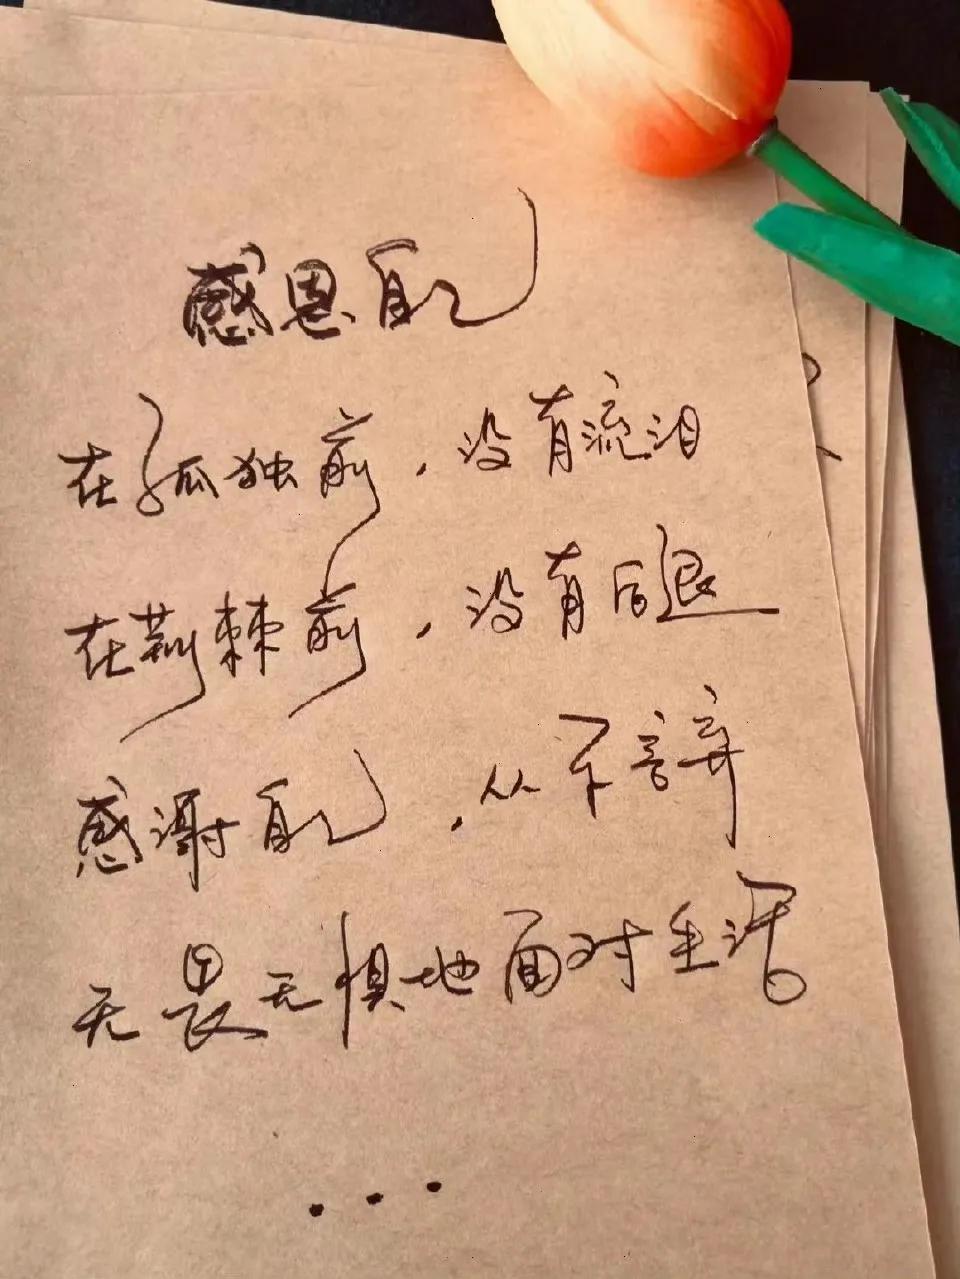 感恩自己
在孤独前，没有流泪
在荆棘前，没有后退
感谢自己，从不言弃
无畏无惧地面对生活
...